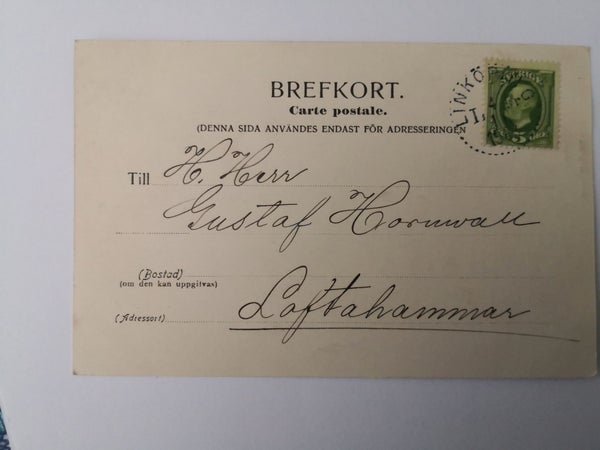 BREFKORT.
Carte postale.
(DENNA SIDA ANVÄNDES ENDAST FÖR ADRESSERINGEN
Till H. Herr
Gustaf Hornwall
(Bostad)
(om den kan uppgifvas)
(Adressort) Loftahammar
LINKÖP
SVERIGE
5 ÖRE